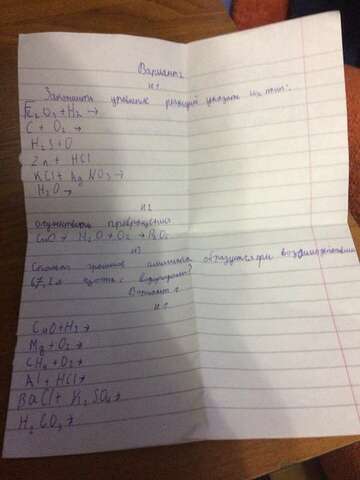 Вариант 2
№1
Закончить уравнение реакций указать их тип:
Fe2O3 + H2 →
C + O2 →
H2S + O
Zn + HCl
KCl + AgNO3 →
H2O →
№2
осуществить превращения
CuO → H2O + O2 →
№3
Сколько грамм аммиака образуется при взаимодействии
67,2 л азота с водородом?
Вариант 1
№1
CuO + H2 →
Mg + O2 →
CH4 + O2 →
Al + HCl →
BaCl + K2SO4 →
H2CO3 →